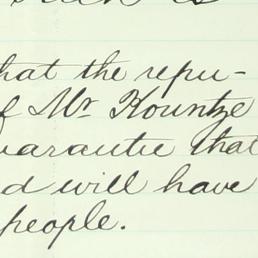 hat the repu-
f Mr Kountze
uarantie that
d will have
people.